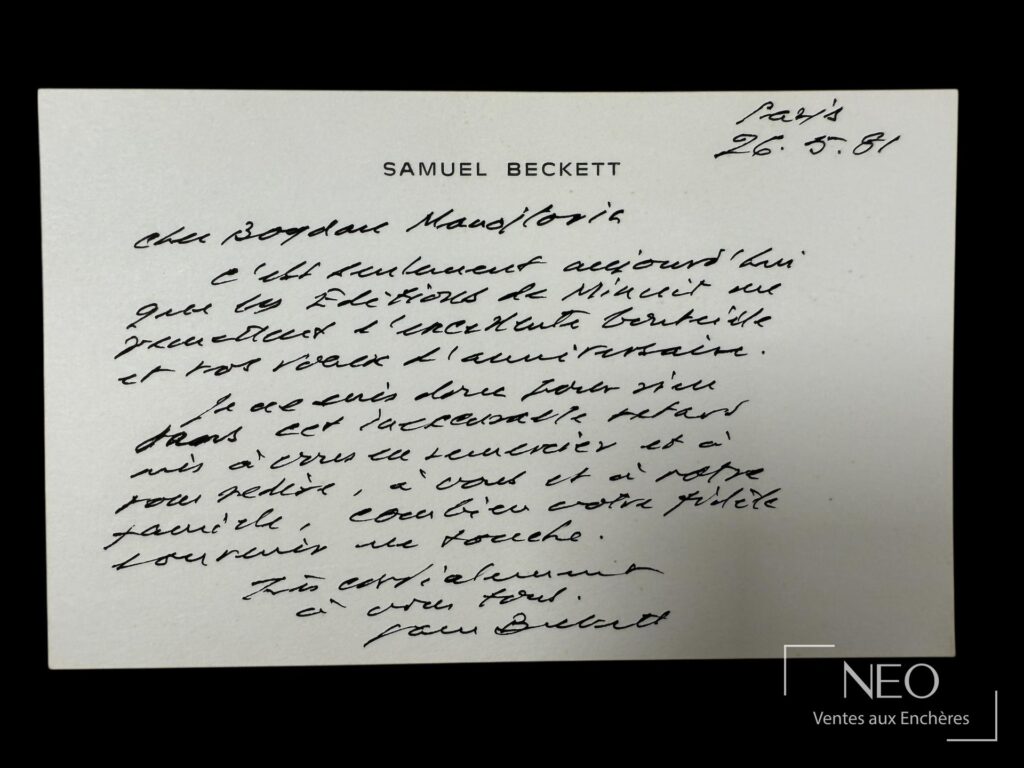 Paris
26.5.81
SAMUEL BECKETT
Cher Bogdan Manojlovic
C'est seulement aujourd'hui
que les Editions de Minuit me
remettent l'excellente bouteille
et vos voeux d'anniversaire.
Je ne suis donc pour rien
dans cet inexcusable retard
mis à vous en remercier et à
vous redire, à vous et à votre
famille, combien votre fidèle
souvenir me touche.
Très cordialement
à vous tous.
Sam Beckett
NEO
Ventes aux Enchères